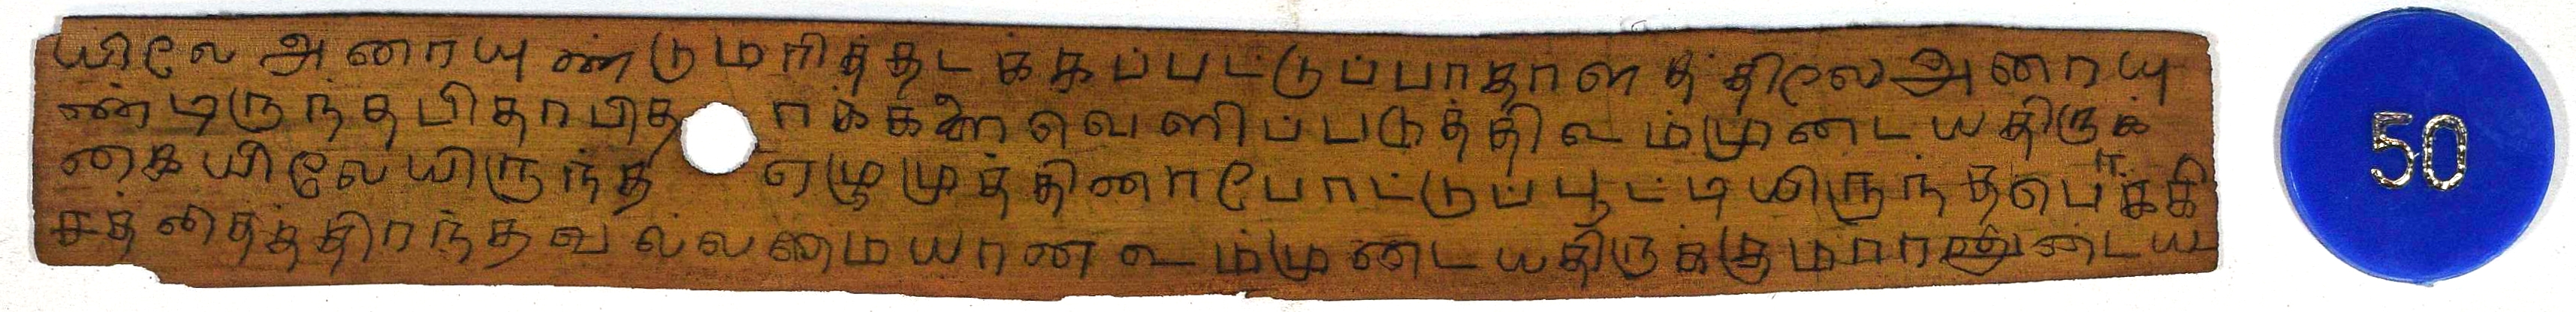 யிலே அரையுண்டு மரித்தடக்கப்பட்டுப்பாதாளத்திலே அரையு
ண்டிருந்த பிதாபிதாக்களை வெளிப்படுத்தி உம்முடைய திருக்
கையிலேயிருந்த ஏழு முத்திரை போட்டுப்பூட்டியிருந்த பொக்கி
சத்தைத்திரந்த வல்லமையான உம்முடைய திருக்குமாரனுடைய
50